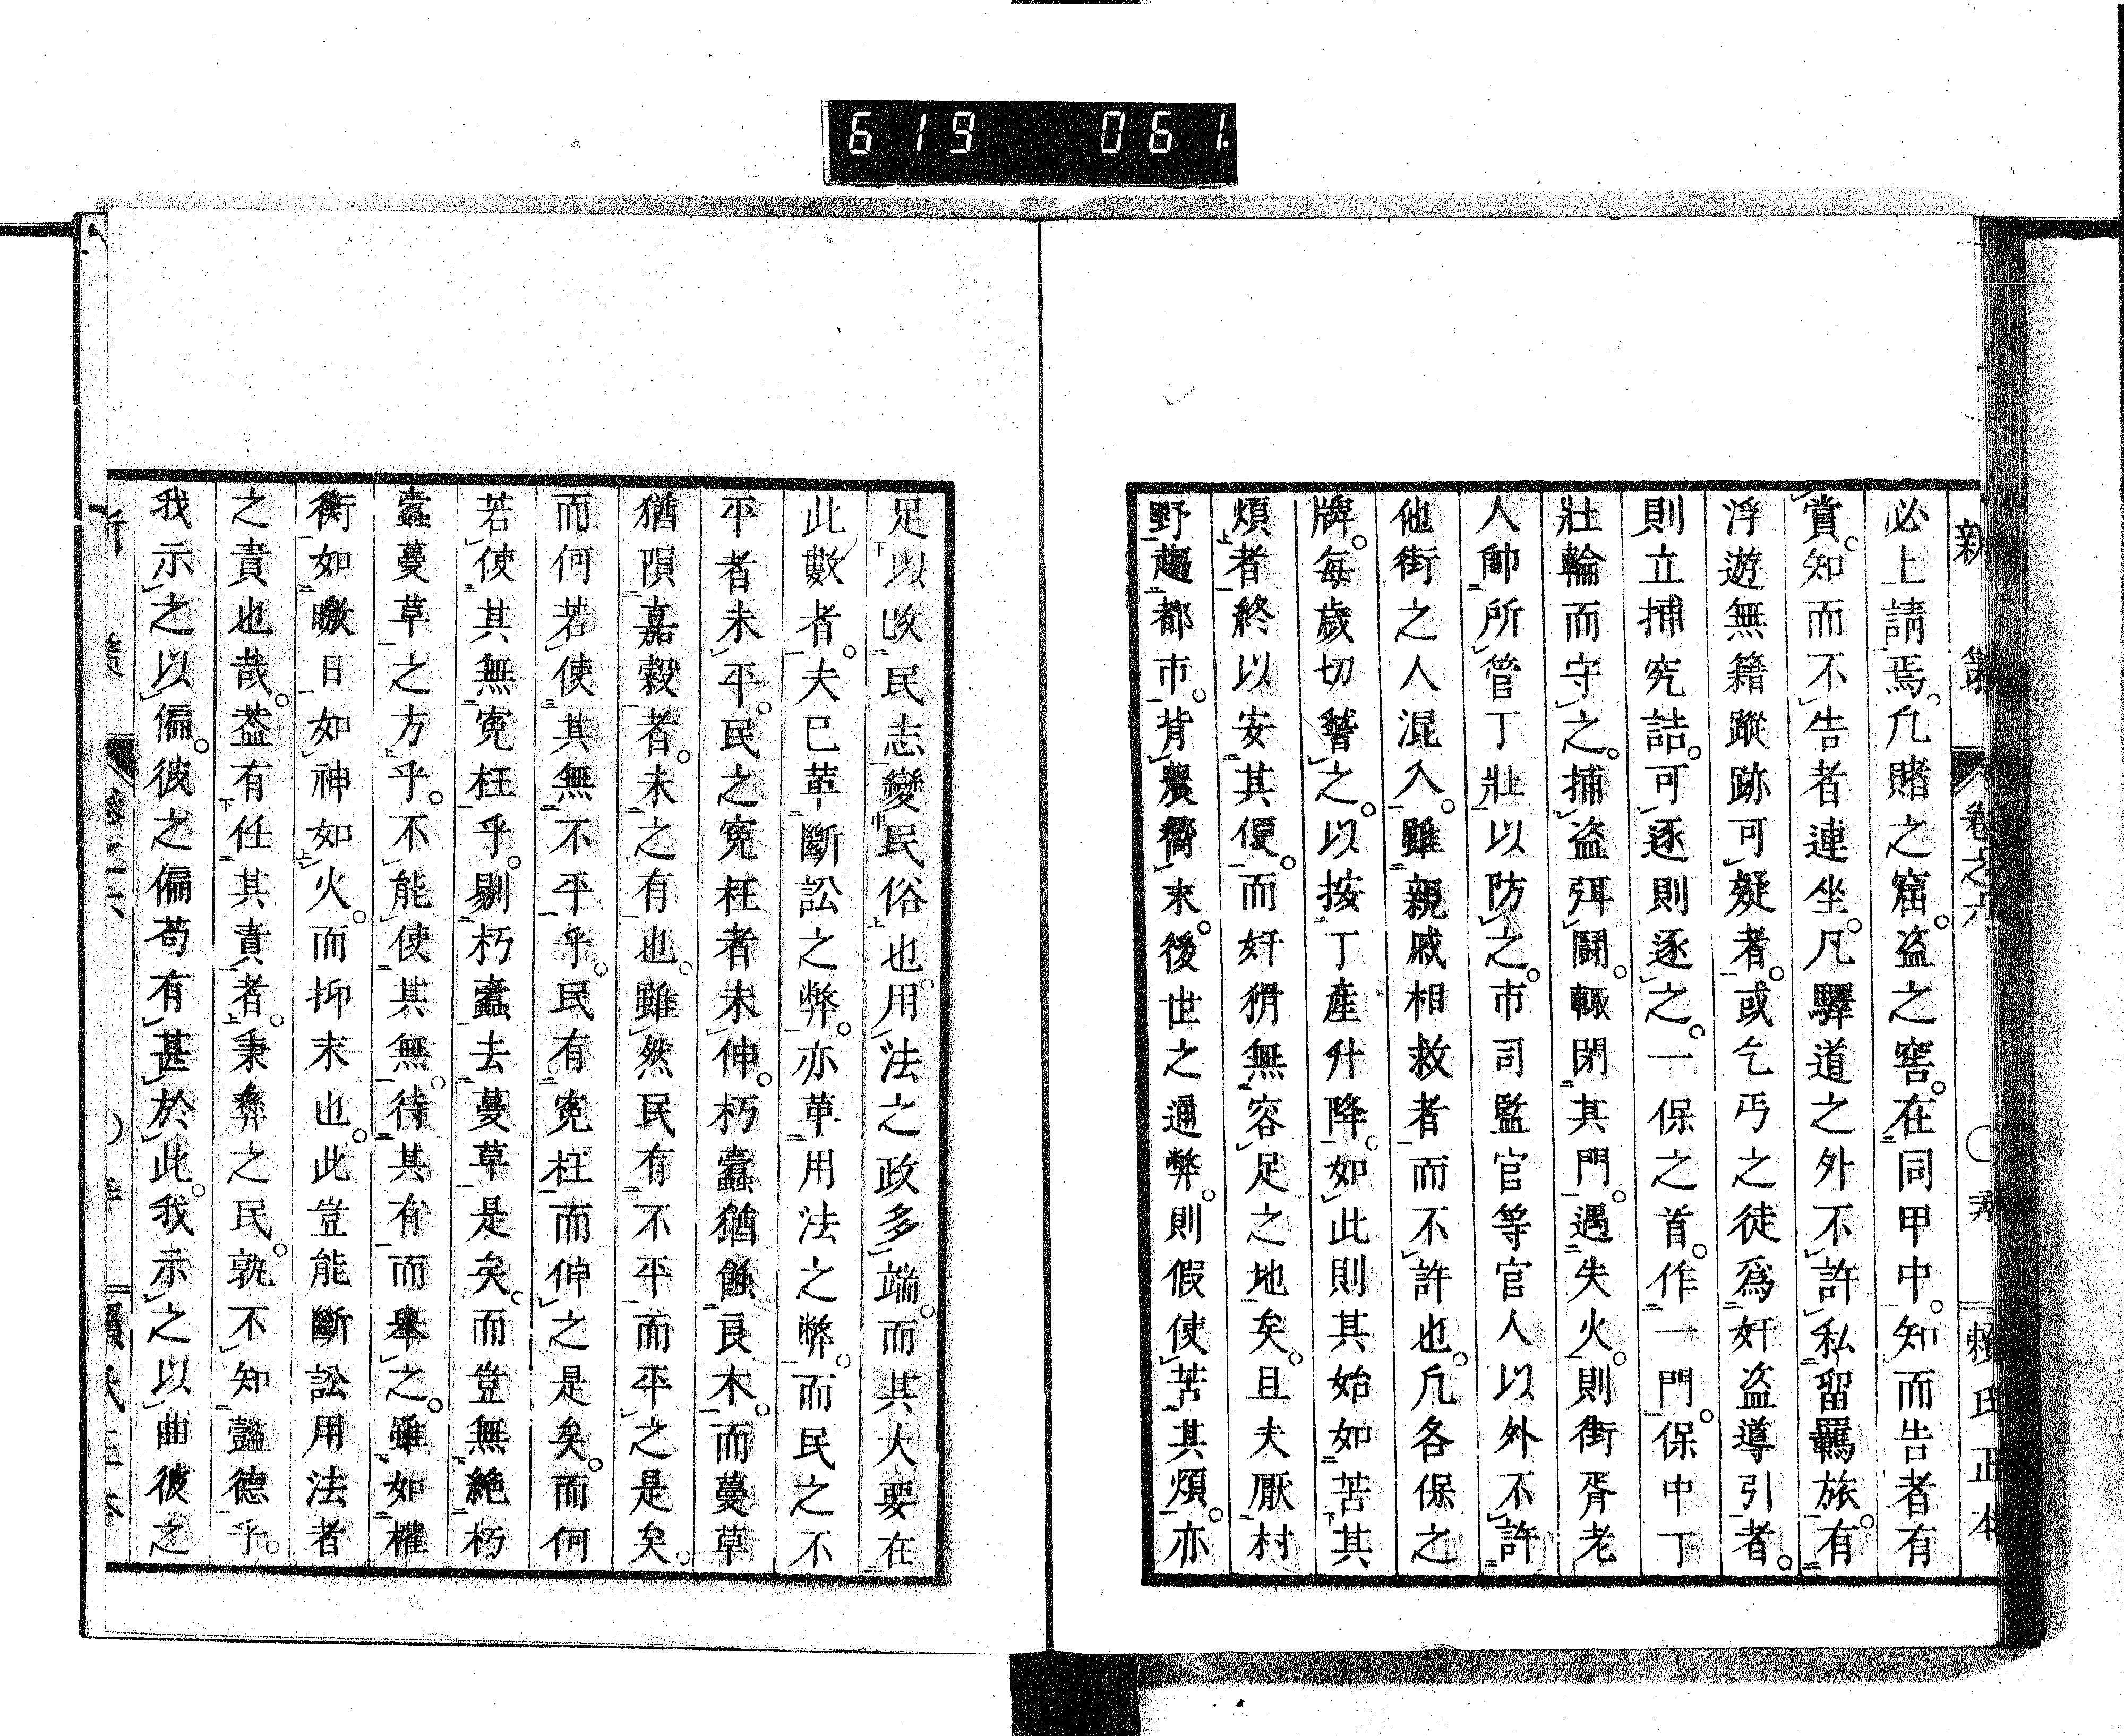 619 061
新策 卷之六 賴氏正本
必上請焉凡賭之窟盗之窖在同甲中知而告者有
賞知而不告者連坐凡驛道之外不許私留羈旅有
浮遊無籍蹤跡可疑者或乞丐之徒爲奸盗導引者
則立捕究詰可逐則逐之一保之首作一門保中丁
壯輪而守之捕盗弭鬪輙閉其門遇失火則街胥老
人帥所管丁壯以防之市司監官等官人以外不許
他街之人混入雖親戚相救者而不許也凡各保之
牌每歲切簮之以按丁產升降如此則其始如苦其
煩者終以安其便而奸猾無容足之地矣且夫厭村
野趨都市背農鬻末後世之通弊則假使苦其煩亦
足以收民志變民俗也用法之政多端而其大要在
此數者夫已革斷訟之弊亦革用法之弊而民之不
平者未平民之寃枉者未伸朽蠧猶蝕良木而蔓草
猶隕嘉穀者未之有也雖然民有不平而平之是矣
而何若使其無不平乎民有寃枉而伸之是矣而何
若使其無寃枉乎剔朽蠧去蔓草是矣而豈無絶朽
蠧蔓草之方乎不能使其無待其有而舉之雖如權
衡如暾日如神如火而抑末也此豈能斷訟用法者
之責也哉葢有任其責者秉彝之民孰不知懿德乎
我示之以偏彼之偏苟有甚於此我示之以曲彼之